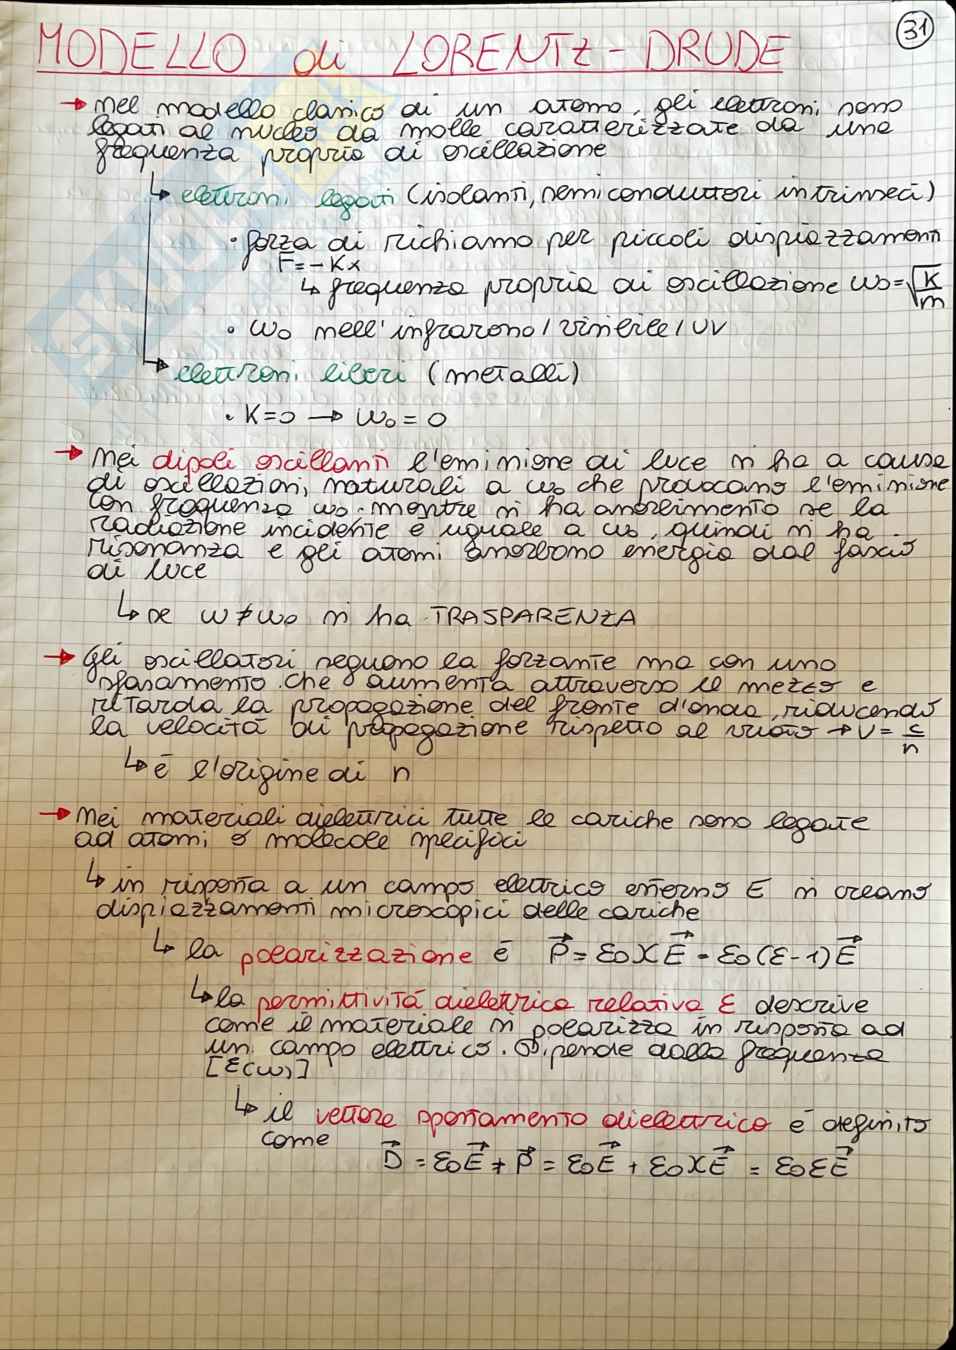 31
MODELLO di LORENTZ-DRUDE
→ nel modello classico di un atomo, gli elettroni sono
legati al nucleo da molle caratterizzate da una
frequenza propria di oscillazione
↳ elettroni legati (isolanti, semiconduttori intrinseci)
• forza di richiamo per piccoli dispiazzamenti
F=-Kx
↳ frequenza propria di oscillazione ω₀=√(K/m)
• ω₀ nell'infrarosso/visibile/UV
→ elettroni liberi (metalli)
• K=0 → ω₀=0
→ Nei dipoli oscillanti l'emissione di luce si ha a causa
di oscillazioni naturali a ω₀ che provocano l'emissione
con frequenza ω₀. mentre si ha assorbimento se la
radiazione incidente è uguale a ω₀, quindi si ha
risonanza e gli atomi assorbono energia dal fascio
di luce
↳ se ω≠ω₀ si ha TRASPARENZA
→ Gli oscillatori seguono la forzante ma con uno
sfasamento che aumenta attraverso il mezzo e
ritarda la propagazione del fronte d'onda, riducendo
la velocità di propagazione rispetto al vuoto → v=c/n
↳ è l'origine di n
→ Nei materiali dielettrici tutte le cariche sono legate
ad atomi o molecole specifici
↳ in risposta a un campo elettrico esterno E si creano
dispiazzamenti microscopici delle cariche
↳ la polarizzazione è P⃗=ε₀χE⃗=ε₀(ε-1)E⃗
↳ la permittività dielettrica relativa ε descrive
come il materiale si polarizza in risposta ad
un campo elettrico. Dipende dalla frequenza
[ε(ω)]
↳ il vettore spostamento dielettrico è definito
come D⃗=ε₀E⃗+P⃗=ε₀E⃗+ε₀χE⃗=ε₀εE⃗